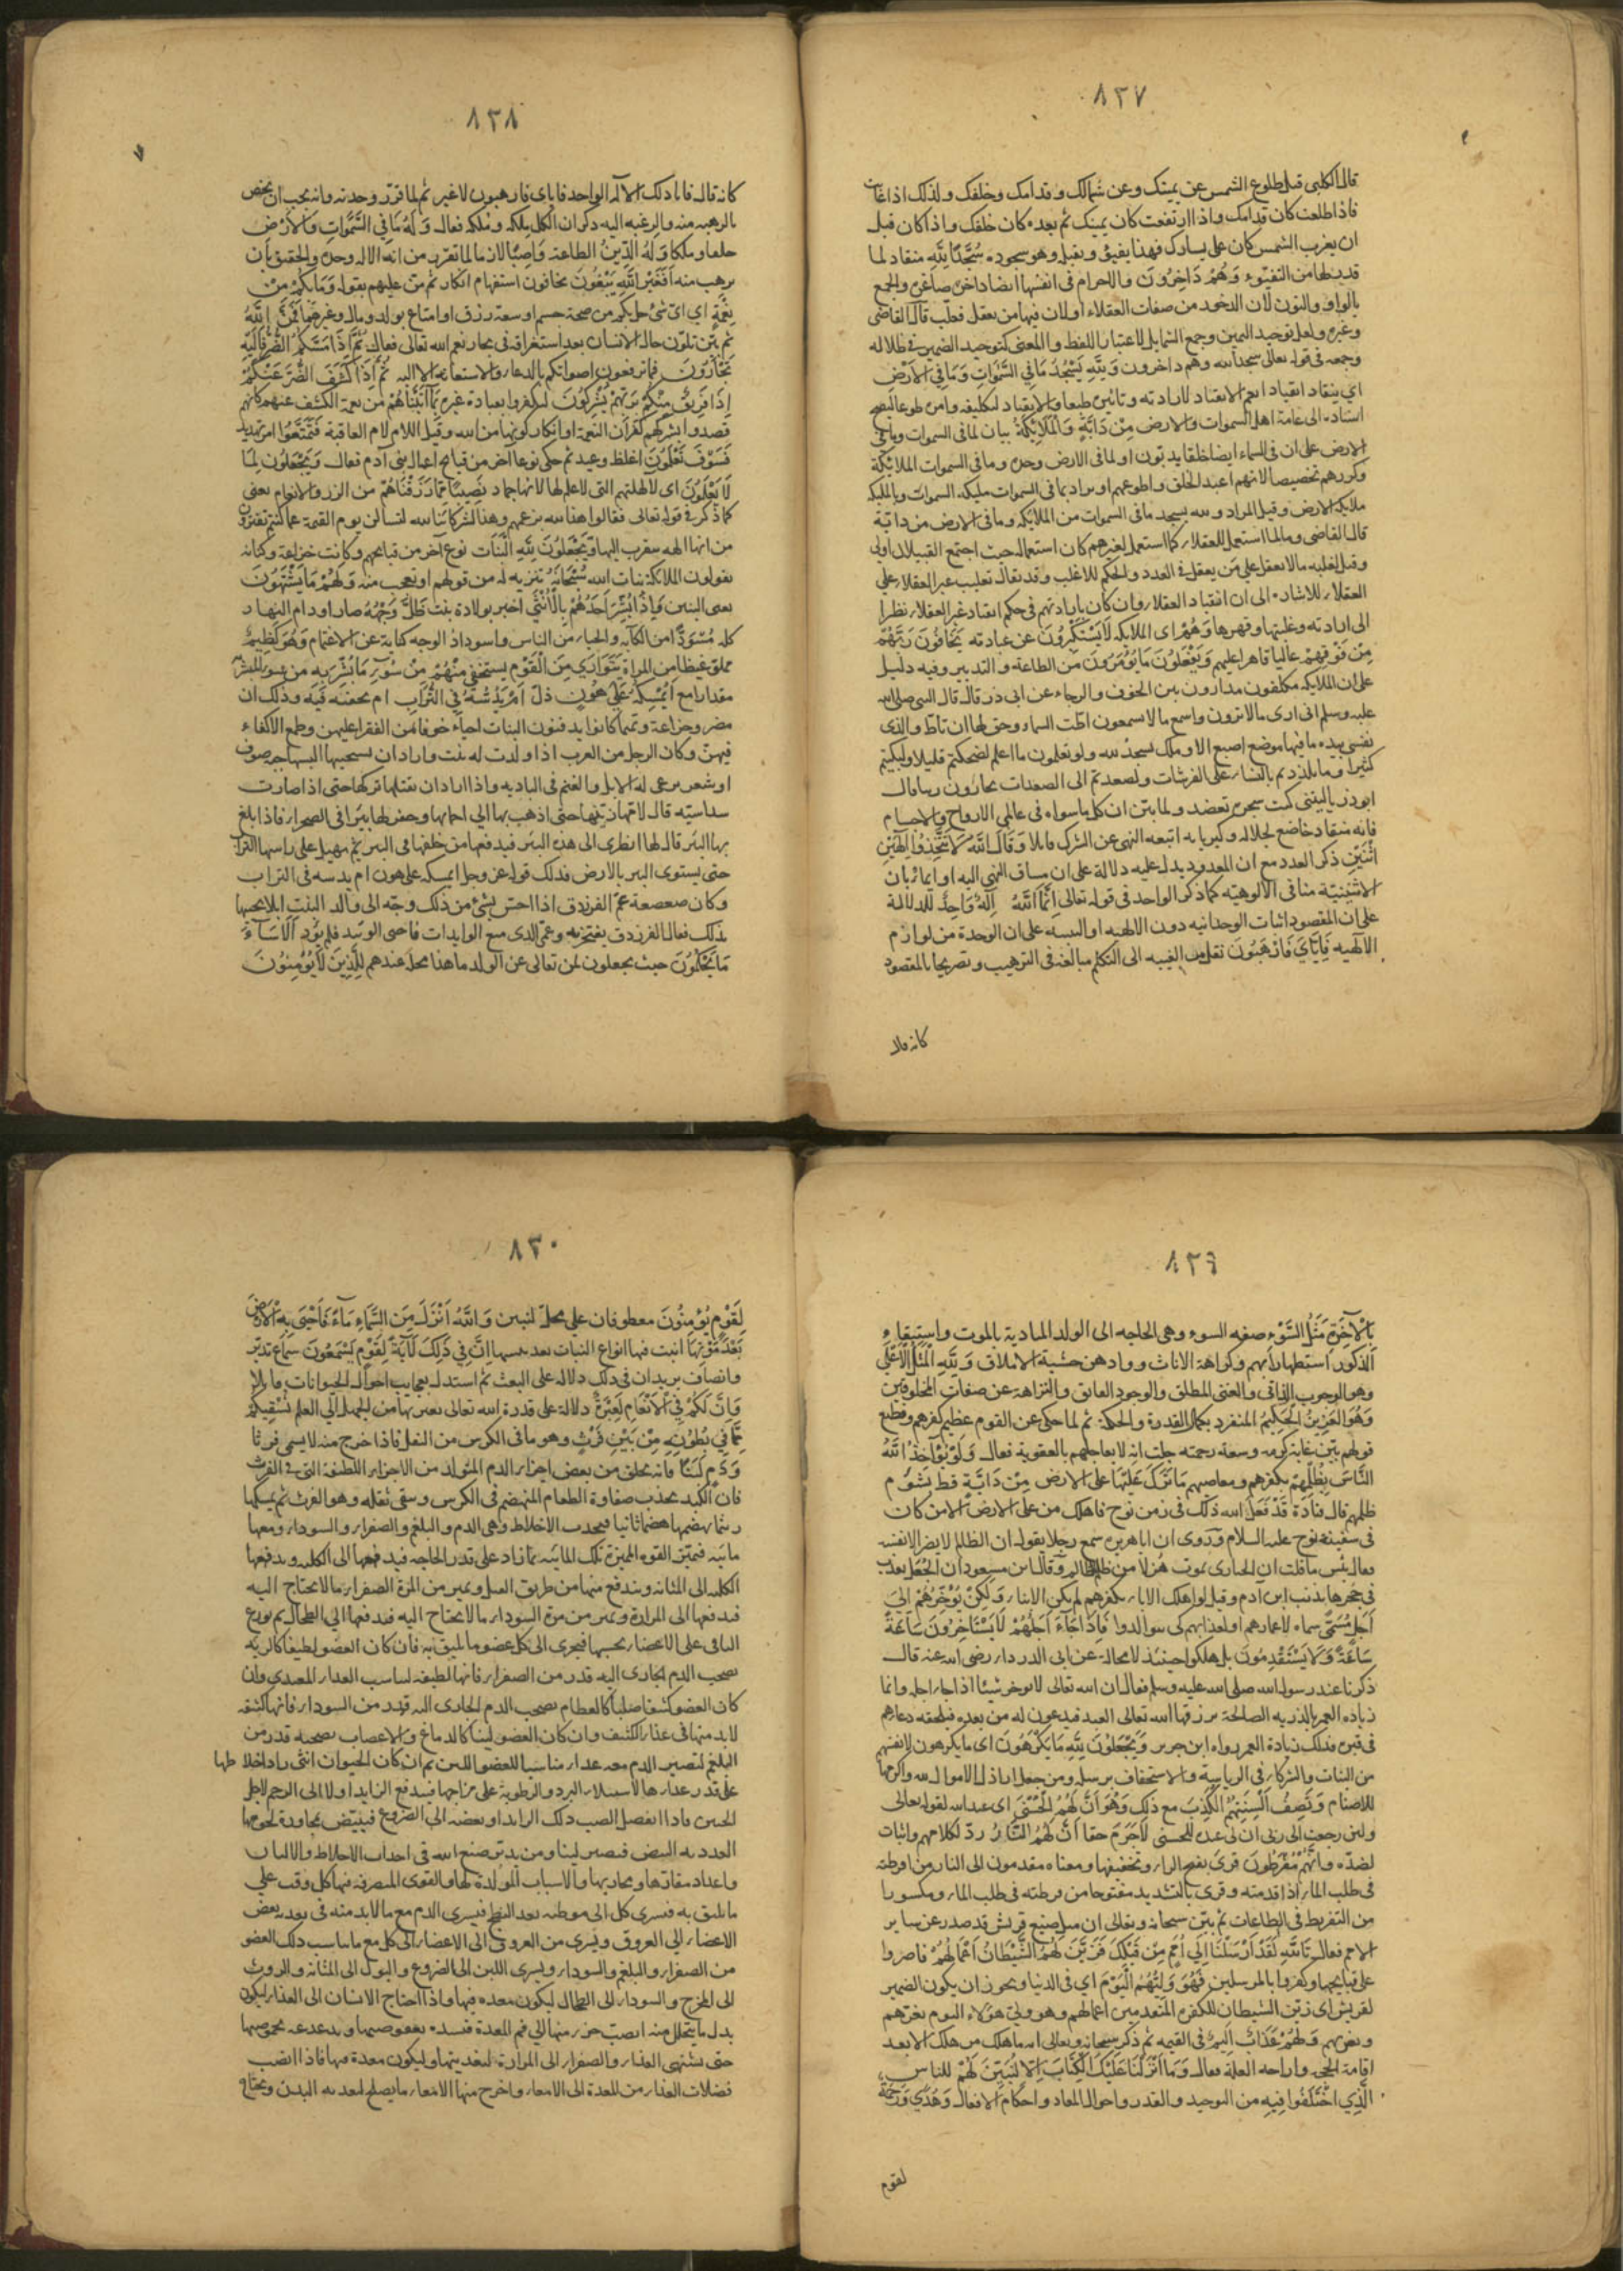 ٨٢٧
قال الكلبي قبل طلوع الشمس عن يمينك وعن شمالك وقدامك وخلفك ولذلك اذا غابت
فاذا طلعت كان قدامك واذا ارتفعت كان يمينك ثم بعده كان خلفك واذا كان قبل
ان يغرب الشمس كان على يسارك فهذا يفيئ وتقبله وهو سجوده سُجَّدًا لِلَّهِ منقاد لما
قدر لها من التفيؤ وَهُمْ دَاخِرُونَ والاجرام في انفسها ايضا داخرة صاغرة والجمع
بالواو والنون لان الدخور من صفات العقلاء او لان فيها من يعقل فغلب قال القاضي
وغيره ولعل توحيد اليمين وجمع الشمايل لاعتبار اللفظ والمعنى كتوحيد الضمير في ظلاله
وجمعه في قوله تعالى سجدا لله وهم داخرون وَلِلَّهِ يَسْجُدُ مَا فِي السَّمَوَاتِ وَمَا فِي الْأَرْضِ
اي ينقاد انقيادا يعم الانقياد لارادته وتاثيره طبعا والانقياد لتكليفه وامره طوعا ليصح
اسناده الى عامة اهل السموات والارض مِنْ دَابَّةٍ وَالْمَلَائِكَةُ بيان لما في السموات وما في
الارض على ان في السماء ايضا خلقا يدبون او لما في الارض وحده وما في السموات الملائكة
وكررهم تخصيصا لانهم اعبد الخلق واطوعهم او يراد بما في السموات مليكه السموات وبالمليكه
ملايكه الارض وقيل المراد ولله يسجد ما في السموات من الملائكه وما في الارض من دابة
قال القاضي وما لما استعمل للعقلاء كما استعمل لغيرهم كان استعماله حيث اجتمع القبيلان اولى
وقيل لغلبه ما لا يعقل على من يعقل في العدد والحكم للاغلب وقد يقال تغليب غير العقلاء على
العقلاء للاشاره الى ان انقياد العقلاء وان كان بارادتهم في حكم انقياد غير العقلاء نظرا
الى ارادته وغلبتها وقهرها وَهُمْ اى الملايكه لَا يَسْتَكْبِرُونَ عن عبادته يَخَافُونَ رَبَّهُمْ
مِنْ فَوْقِهِمْ عاليا قاهرا عليهم وَيَفْعَلُونَ مَا يُؤْمَرُونَ من الطاعة والتدبير وفيه دليل
على ان الملايكه مكلفون مدارون بين الخوف والرجاء عن ابى ذر قال قال النبى صلى الله
عليه وسلم انى ارى ما لا ترون واسمع ما لا تسمعون اطت السماء وحق لها ان تاط والذى
نفسى بيده ما فيها موضع اصبع الا وملك يسجد لله ولو تعلمون ما اعلم لضحكتم قليلا ولبكيتم
كثيرا وما تلذذتم بالنساء على الفرشات ولصعدتم الى الصعدات تجارون ربنا قال
ابو ذر يا ليتنى كنت شجرة تعضد ولما بين ان كل ما سواه فى عالمى الارواح والاجسام
فانه منقاد خاضع لجلاله وكبريايه اتبعه النهى عن الشرك قايلا وَقَالَ اللَّهُ لَا تَتَّخِذُوا إِلَهَيْنِ
اثْنَيْنِ ذكر العدد مع ان المعدود يدل عليه دلالة على ان مساق النهى اليه او ايماء بان
الاثنينية منافى الالوهية كما ذكر الواحد فى قوله تعالى إِنَّمَا اللَّهُ إِلَهٌ وَاحِدٌ للدلالة
على ان المقصود اثبات الوحدانيه دون الالهيه او التنبيه على ان الوحدة من لوازم
الالهيه فَإِيَّايَ فَارْهَبُونِ نقل من الغيبه الى التكلم مبالغة فى الترهيب وتصريحا بالمقصود
كانه قال
٨٢٨
كانه قال فانا ذلك الاله الواحد فاياى فارهبون لا غير ثم لما قرر وحدته وانه يجب ان يخص
بالرهبه منه والرغبه اليه ذكر ان الكل بملكه وملكه فقال وَلَهُ مَا فِي السَّمَوَاتِ وَالْأَرْضِ
خلقا وملكا وَلَهُ الدِّينُ الطاعة وَاصِبًا لازما لما تقرر من انه الاله وحده والحقيق بان
يرهب منه أَفَغَيْرَ اللَّهِ تَتَّقُونَ تخافون استفهام انكار ثم من عليهم بقوله وَمَا بِكُمْ مِنْ
نِعْمَةٍ اي اى شئ حل بكم من صحة جسم او سعة رزق او امتاع بولد ومال وغيرهما فَمِنَ اللَّهِ
ثم بين تلون حال الانسان بعد استغراقه فى بحار نعم الله تعالى فقال ثُمَّ إِذَا مَسَّكُمُ الضُّرُّ فَإِلَيْهِ
تَجْأَرُونَ فما ترفعون اصواتكم بالدعاء والاستعانه الا اليه ثُمَّ إِذَا كَشَفَ الضُّرَّ عَنْكُمْ
إِذَا فَرِيقٌ مِنْكُمْ بِرَبِّهِمْ يُشْرِكُونَ ليكفروا بعبادة غيره بِمَا آتَيْنَاهُمْ من نعمة الكشف عنهم كانهم
قصدوا بشركهم كفران النعمة او انكار كونها من الله وقيل اللام لام العاقبة فَتَمَتَّعُوا امر تهديد
فَسَوْفَ تَعْلَمُونَ اغلظ وعيد ثم حكى نوعا آخر من قبايح اعمال بنى آدم فقال وَيَجْعَلُونَ لِمَا
لَا يَعْلَمُونَ اى لآلهتهم التى لا علم لها لانها جماد نَصِيبًا مِمَّا رَزَقْنَاهُمْ من الزرع والانعام يعنى
كما ذكر فى قوله تعالى فقالوا هذا لله بزعمهم وهذا لشركائنا لله لتسألن يوم القيمة عما كنتم تفترون
من انها الهه يتقرب اليها وَيَجْعَلُونَ لِلَّهِ الْبَنَاتِ نوع آخر من قبايحهم وكانت خزاعة وكنانه
يقولون الملائكة بنات الله سُبْحَانَهُ تنزيه له من قولهم او تعجب منه وَلَهُمْ مَا يَشْتَهُونَ
يعنى البنين وَإِذَا بُشِّرَ أَحَدُهُمْ بِالْأُنْثَى اخبر بولادة بنت ظَلَّ وَجْهُهُ صار او دام النهار
كله مُسْوَدًّا من الكآبه والحياء من الناس واسوداد الوجه كناية عن الاغتمام وَهُوَ كَظِيمٌ
مملؤ غيظا من المراة يَتَوَارَى مِنَ الْقَوْمِ يستخفى منهم مِنْ سُوءِ مَا بُشِّرَ بِهِ من سوء المبشر به
أَيُمْسِكُهُ عَلَى هُونٍ ذل أَمْ يَدُسُّهُ فِي التُّرَابِ ام يخفيه فيه وذلك ان
مضر وخزاعة وتميما كانوا يدفنون البنات احياء خوفا من الفقر عليهن وطمع الاكفاء
فيهن وكان الرجل من العرب اذا ولدت له بنت واراد ان يستحييها البسها جبه صوف
او شعر يرعى له الابل والغنم فى الباديه واذا اراد ان يقتلها تركها حتى اذا صارت
سداسيه قال لامها زينيها حتى اذهب بها الى احمائها وحفر لها بيرا فى الصحراء فاذا بلغ
بها البئر قال لها انظرى الى هذه البئر فيدفعها من خلفها فى البير ثم يهيل على راسها التراب
حتى يستوى البير بالارض فذلك قوله عز وجل ايمسكه على هون ام يدسه فى التراب
وكان صعصعة عم الفرزدق اذا احس بشئ من ذلك وجه الى والد البنت ابلا يحييها
بذلك فقال الفرزدق يفتخر به وعمى الذى منع الوايدات فاحيى الوئيد فلم يؤد أَلَا سَاءَ
مَا يَحْكُمُونَ حيث يجعلون لمن تعالى عن الولد ما هذا محله عندهم لِلَّذِينَ لَا يُؤْمِنُونَ
٨٢٩
بِالْآخِرَةِ مَثَلُ السَّوْءِ صفة السوء وهى الحاجه الى الولد المنادية بالموت واستبقاء
الذكور استظهارا بهم وكراهة الاناث ووادهن خشية الاملاق وَلِلَّهِ الْمَثَلُ الْأَعْلَى
وهو الوجوب الذاتى والغنى المطلق والوجود الفائق والنزاهة عن صفات المخلوقين
وَهُوَ الْعَزِيزُ الْحَكِيمُ المنفرد بكمال القدرة والحكمة ثم لما حكى عن القوم عظيم كفرهم وفظيع
قولهم بين غاية كرمه وسعة رحمته حيث انه لا يعاجلهم بالعقوبة فقال وَلَوْ يُؤَاخِذُ اللَّهُ
النَّاسَ بِظُلْمِهِمْ بكفرهم ومعاصيهم مَا تَرَكَ عَلَيْهَا على الارض مِنْ دَابَّةٍ قط بشؤم
ظلمهم قال قتادة قد فعل الله ذلك فى زمن نوح فاهلك من على الارض الا من كان
فى سفينة نوح عليه السلام وروى ان ابا هريره سمع رجلا يقول ان الظالم لا يضر الا نفسه
فقال بئس ما قلت ان الحبارى تموت هزلا من ظلم الظالم وقال ابن مسعود ان الجعل تعذب
فى جحرها بذنب ابن آدم وقيل لو اهلك الاباء بكفرهم لم يكن الابناء وَلَكِنْ يُؤَخِّرُهُمْ إِلَى
أَجَلٍ مُسَمًّى سماه لاعمارهم او لعذابهم كى يتوالدوا فَإِذَا جَاءَ أَجَلُهُمْ لَا يَسْتَأْخِرُونَ سَاعَةً
سَاعَةً وَلَا يَسْتَقْدِمُونَ بل هلكوا حينئذ لا محالة عن ابى الدرداء رضى الله عنه قال
ذكرنا عند رسول الله صلى الله عليه وسلم فقال ان الله تعالى لا يوخر شيئا اذا جاء اجله وانما
زياده العمر بالذريه الصالحة يرزقها الله تعالى العبد فيدعون له من بعده فيلحقه دعاءهم
فى قبره فذلك زيادة العمر رواه ابن جرير وَيَجْعَلُونَ لِلَّهِ مَا يَكْرَهُونَ اى ما يكرهون لانفسهم
من البنات والشركاء فى الرياسة والاستخفاف برسله ومن جعل اراذل الاموال لله واكرمها
للاصنام وَتَصِفُ أَلْسِنَتُهُمُ الْكَذِبَ مع ذلك وهو أَنَّ لَهُمُ الْحُسْنَى اى عند الله لقوله تعالى
ولئن رجعت الى ربى ان لى عنده للحسنى لَا جَرَمَ حقا أَنَّ لَهُمُ النَّارَ رد لكلامهم واثبات
لضده وَأَنَّهُمْ مُفْرَطُونَ قرئ بفتح الراء وتخفيفها ومعناه مقدمون الى النار من افرطته
فى طلب الماء اذا قدمته وقرئ بالتشديد مفتوحا من فرطته فى طلب الماء ومكسورا
من التفريط فى الطاعات ثم بين سبحانه وتعالى ان مثل صنيع قريش قد صدر عن ساير
الامم فقال تَاللَّهِ لَقَدْ أَرْسَلْنَا إِلَى أُمَمٍ مِنْ قَبْلِكَ فَزَيَّنَ لَهُمُ الشَّيْطَانُ أَعْمَالَهُمْ فاصروا
على قبايحها وكفروا بالمرسلين فَهُوَ وَلِيُّهُمُ الْيَوْمَ اي فى الدنيا ويجوز ان يكون الضمير
لقريش اى زين الشيطان للكفره المتقدمين اعمالهم وهو ولى هؤلاء اليوم يغرهم
ويغويهم وَلَهُمْ عَذَابٌ أَلِيمٌ فى القيمه ثم ذكر سبحانه وتعالى انه ما هلك من هلك الا بعد
اقامة الحجة وازاحه العلة فقال وَمَا أَنْزَلْنَا عَلَيْكَ الْكِتَابَ إِلَّا لِتُبَيِّنَ لَهُمُ للناس
الَّذِي اخْتَلَفُوا فِيهِ من التوحيد والقدر واحوال المعاد واحكام الافعال وَهُدًى وَرَحْمَةً
لقوم
٨٣٠
لِقَوْمٍ يُؤْمِنُونَ معطوفان على محل لتبين وَاللَّهُ أَنْزَلَ مِنَ السَّمَاءِ مَاءً فَأَحْيَى بِهِ الْأَرْضَ
بَعْدَ مَوْتِهَا انبت فيها انواع النبات بعد يبسها إِنَّ فِي ذَلِكَ لَآيَةً لِقَوْمٍ يَسْمَعُونَ سماع تدبر
وانصاف يريد ان فى ذلك دلاله على البعث ثم استدل بعجايب احوال الحيوانات قايلا
وَإِنَّ لَكُمْ فِي الْأَنْعَامِ لَعِبْرَةً دلالة على قدرة الله تعالى يعبر بها من الجهل الى العلم نُسْقِيكُمْ
مِمَّا فِي بُطُونِهِ مِنْ بَيْنِ فَرْثٍ وهو ما فى الكرش من الثفل فاذا خرج منه لا يسمى فرثا
وَدَمٍ لَبَنًا فانه يخلق من بعض اجزاء الدم المتولد من الاجزاء اللطيفة التى فى الفرث
فان الكبد يجذب صفاوة الطعام المنهضم فى الكرش وبقى ثفله وهو الفرث ثم يمسكها
ريثما يهضمها هضما ثانيا فيحدث الاخلاط وهى الدم والبلغم والصفراء والسوداء ومعها
مايية فتميز القوه المميزة تلك المايية بما زاد على قدر الحاجه فيدفعها الى الكليه ويدفعها
الكليه الى المثانه
الباقى على الاعضاء بحسبها فيجرى الى كل عضو ما يليق به فان كان العضو لطيفا كالريه
يصحب الدم الجارى اليه قدر من الصفراء فانها لطيفه
كان العضو كثيفا صلبا كالعظام يصحب الدم الجارى اليه قدر من السوداء فانها كثيفه
لا بد منها فى غذاء الكثيف وان كان العضو لينا كالدماغ والاعصاب يصحبه قدر من
البلغم ليصير الدم معه غذاء مناسبا للعضو اللين ثم ان كان الحيوان انثى زاد اخلاطها
على قدر غذائها لاستيلاء البرد والرطوبة على مزاجها فيندفع الزايد اولا الى الرحم لاجل
الجنين فاذا انفصل انصب ذلك الزايد او بعضه الى الضروع فيبيض بمجاورة لحومها
الغدديه البيض فيصير لبنا ومن يدبر صنع الله فى احداث الاخلاط والالبان
واعداد مقارها ومجاريها والاسباب المولدة لها والقوى المتصرفه فيها كل وقت على
ما يليق به
الاعضاء الى العروق ويسرى من العروق الى الاعضاء الى كل مع ما يناسب ذلك العضو
من الصفراء والبلغم والسوداء ويسرى اللبن الى الضروع والبول الى المثانه والروث
الى المخرج والسوداء الى الطحال ليكون معده فيها واذا احتاج الانسان الى الغذاء ليكون
بدل ما يتحلل منه انصب جزء منها الى فم المعدة
حتى يشتهى الغذاء والصفراء الى المرارة لتغذيتها وليكون معدة فيها فاذا انصب
فضلات الغذاء من المعدة الى الامعاء واخرج منها الامعاء ما يصلح لتغذيه البدن ويحتاج